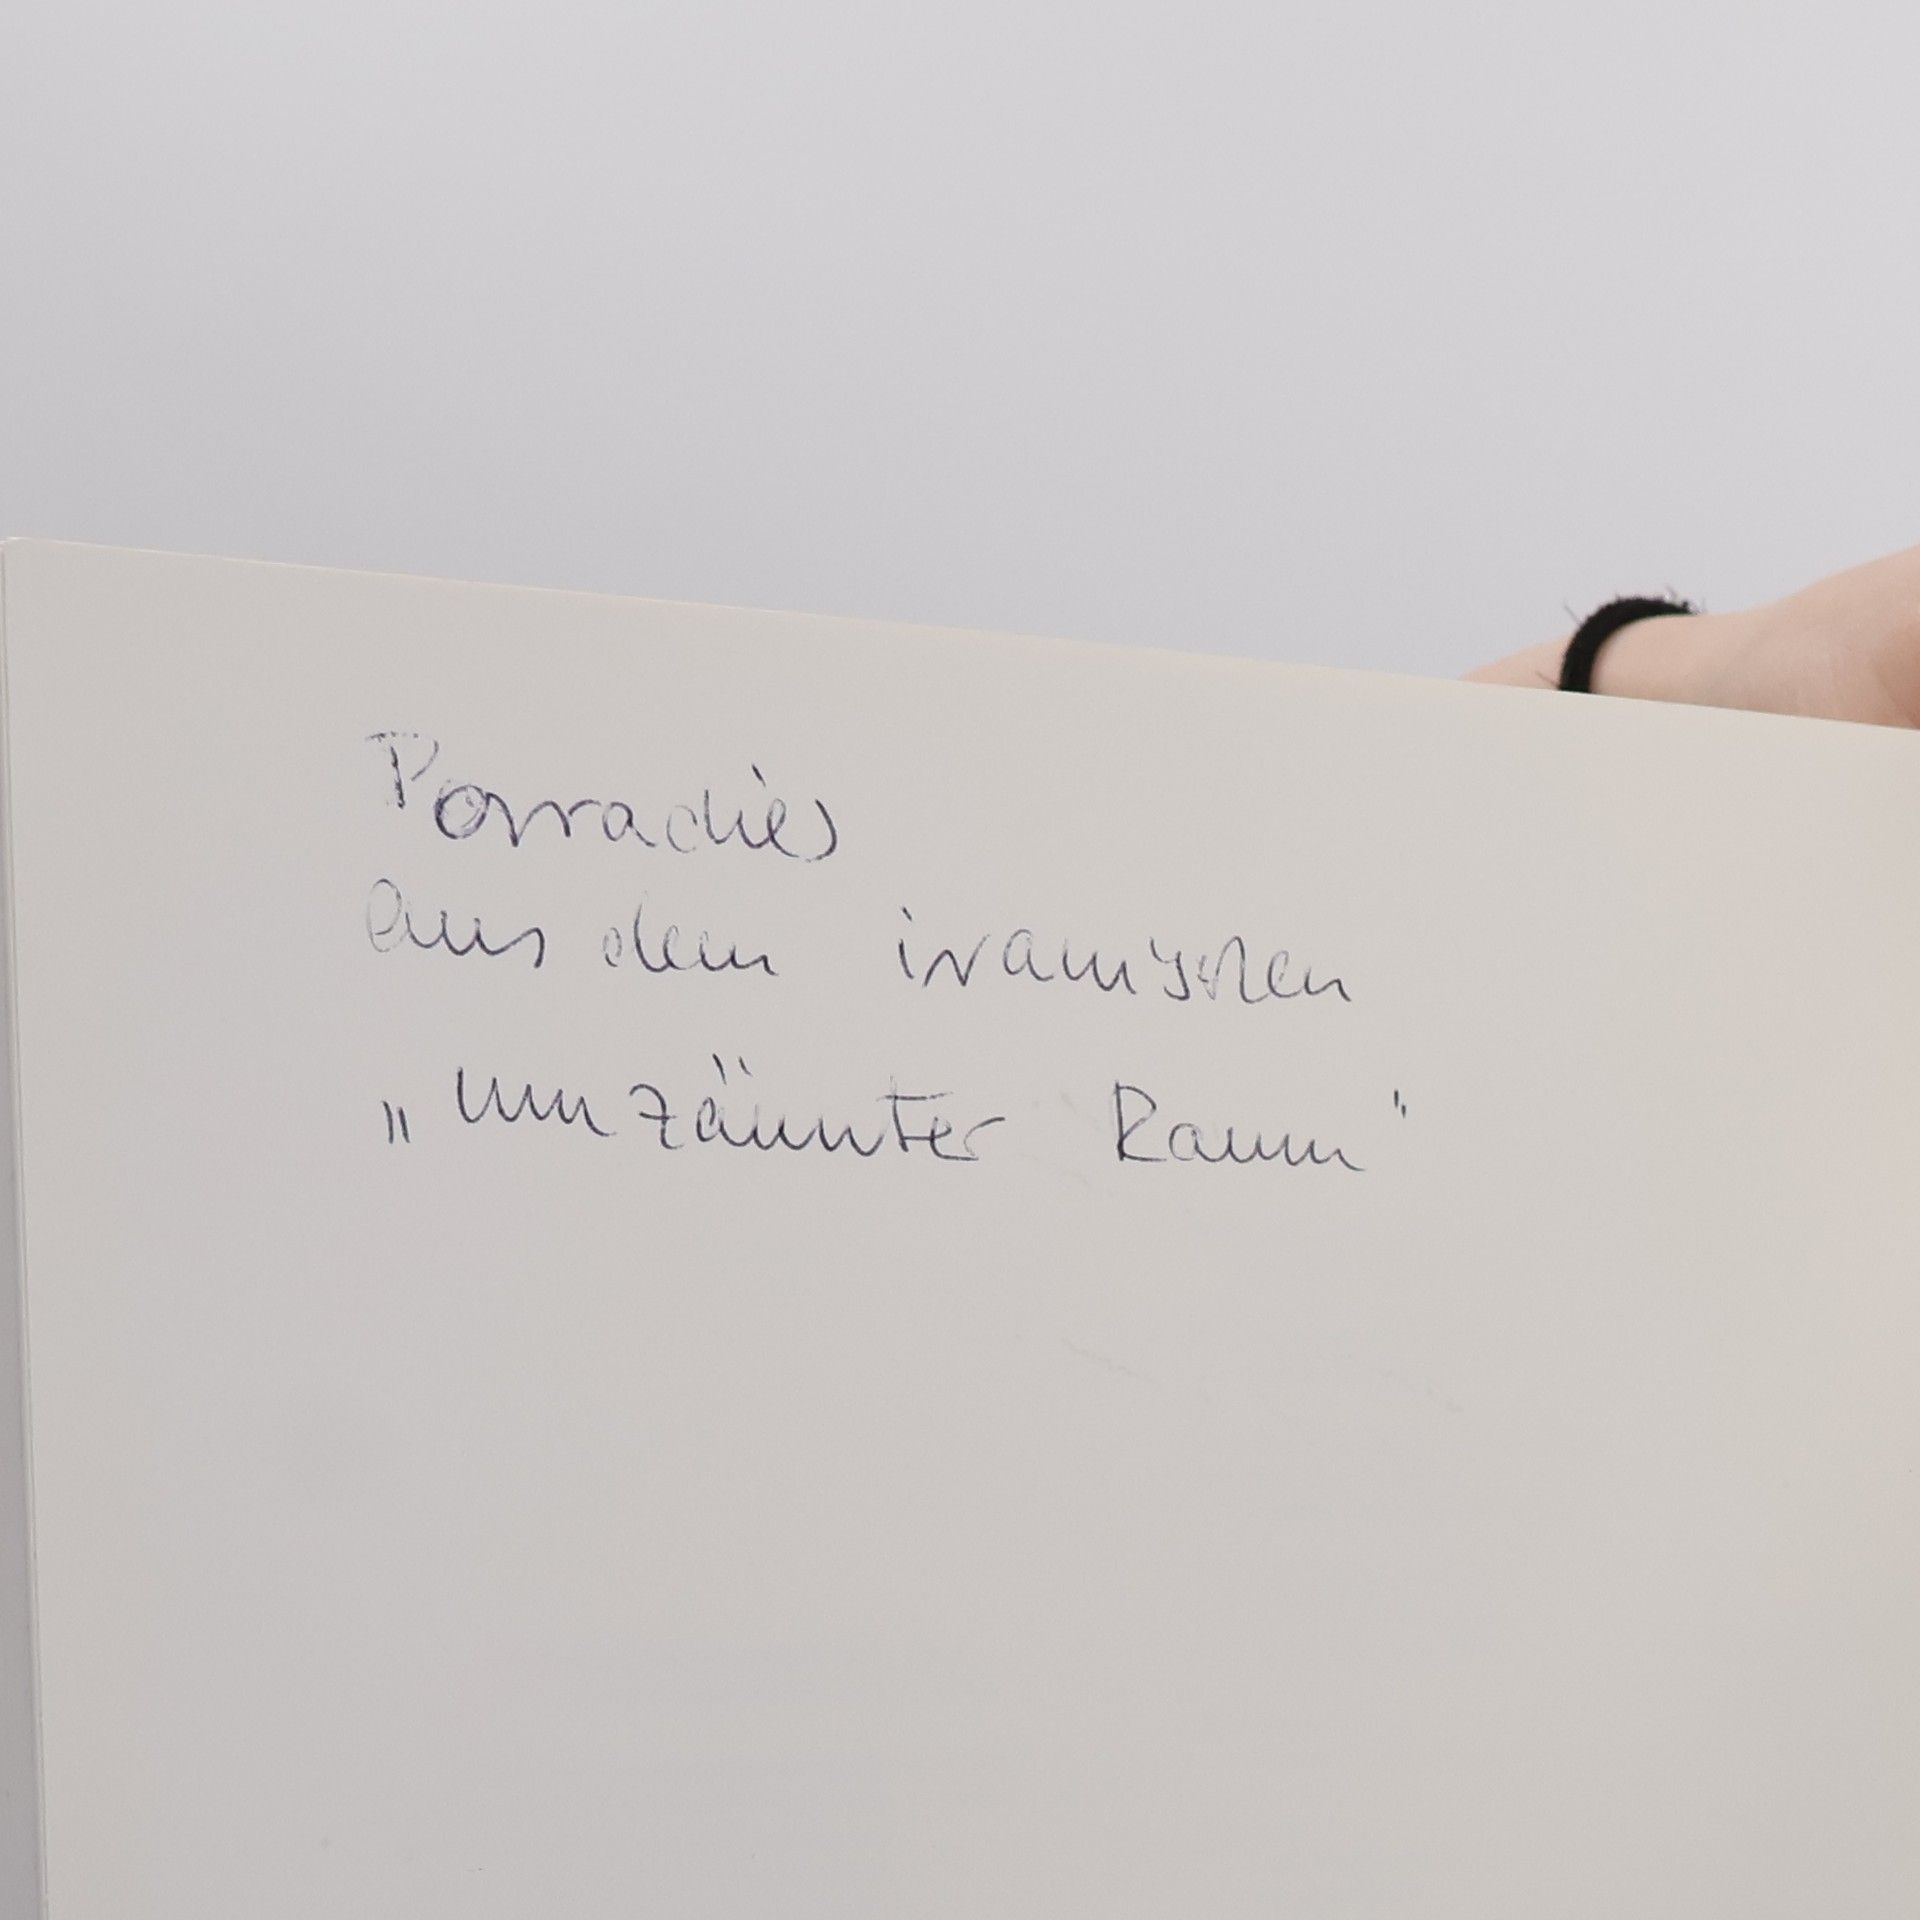 Parradies
aus dem iranischen
„umzäunter Raum"